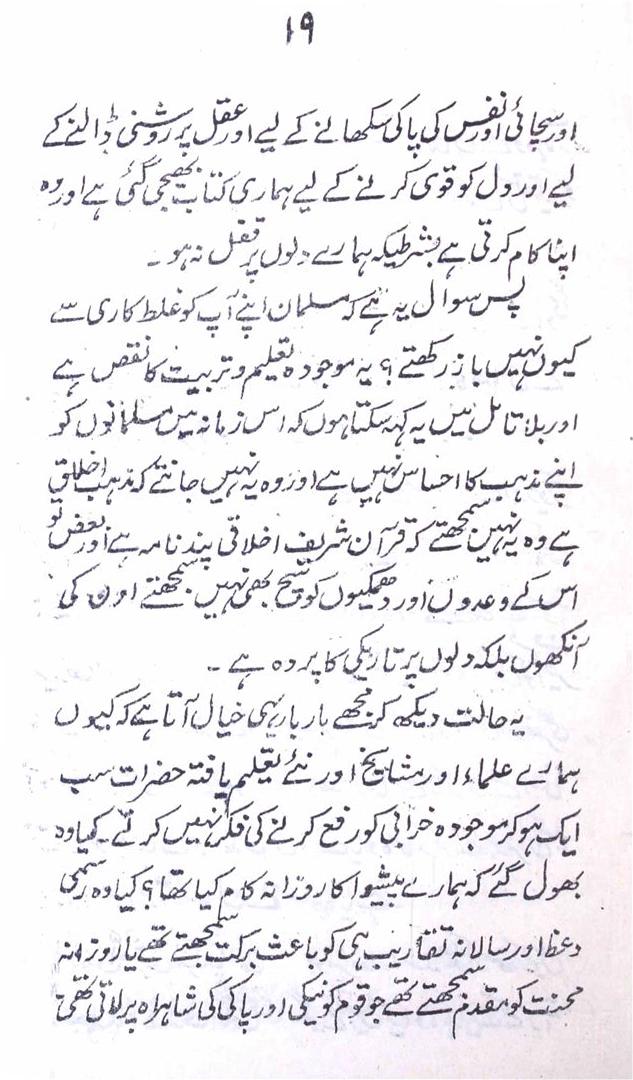 ۱۹
اور سچائی اور نفس کی پاکی سکھانے کے لیے اور عقل پر روشنی ڈالنے کے
لیے اور دل کو قوی کرنے کے لیے ہماری کتاب بھیجی گئی ہے اور وہ
اپنا کام کرتی ہے بشرطیکہ ہمارے دلوں پر قفل نہ ہو۔
پس سوال یہ ہے کہ مسلمان اپنے آپ کو غلط کاری سے
کیوں نہیں باز رکھتے؟ یہ موجودہ تعلیم و تربیت کا نقص ہے
اور بلا تامل میں یہ کہہ سکتا ہوں کہ اس زمانہ میں مسلمانوں کو
اپنے مذہب کا احساس نہیں ہے اور وہ یہ نہیں جانتے کہ مذہب اخلاق
ہے وہ یہ نہیں سمجھتے کہ قرآن شریف اخلاقی پندنامہ ہے اور بعض تو
اس کے وعدوں اور دھمکیوں کو سچ بھی نہیں سمجھتے اون کی
آنکھوں بلکہ دلوں پر تاریکی کا پردہ ہے۔
یہ حالت دیکھ کر مجھے بار بار یہی خیال آتا ہے کہ کیوں
ہمارے علماء اور مشایخ اور نئے تعلیم یافتہ حضرات سب
ایک ہو کر موجودہ خرابی کو رفع کرنے کی فکر نہیں کرتے۔ کیا وہ
بھول گئے کہ ہمارے پیشوا کا روزانہ کام کیا تھا؟ کیا وہ رسمی
وعظ اور سالانہ تقاریب ہی کو باعث برکت سمجھتے تھے یا روزانہ
محنت کو مقدم سمجھتے تھے جو قوم کو نیکی اور پاکی کی شاہراہ پر لاتی تھی